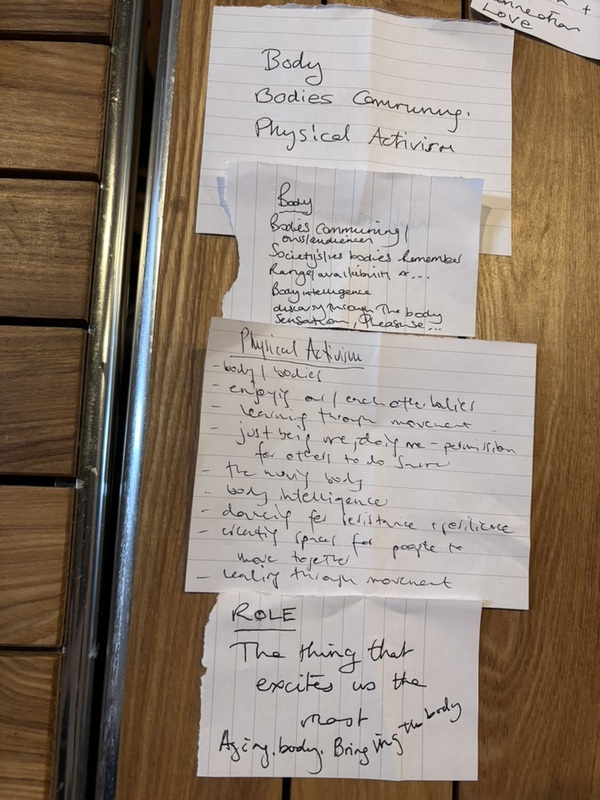 +
onnection
LOVE
Body
Bodies Communing.
Physical Activism
Body
Bodies communing/
ours/audiences
Society's/es bodies Remember
Range/availability or...
Body intelligence
discovery through The body
Sensation, Pleasure...
Physical Activism
- body / bodies
- enjoying our/each other bodies
- learning through movement
- just being me, doing me - permission
for others to do same
- the moving body
- body intelligence
- dancing for resistance + resilience
- creating spaces for people to
move together
- healing through movement
ROLE
The thing that
excites us the
most
Aging body. Bringing the body